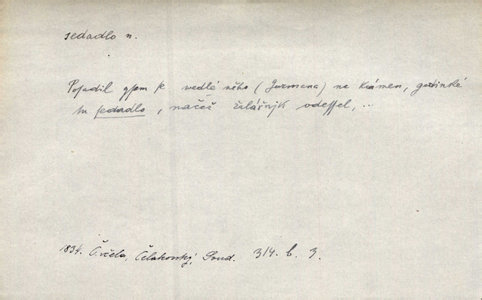 sedadlo n.
Posadil gsem se wedlé něho (Jurmana) na kámen, gediné
tu sedadlo, načež žalářnjk odessel,..
1834. Č. včela, Čelakovský, Soud. 314. b. 3.